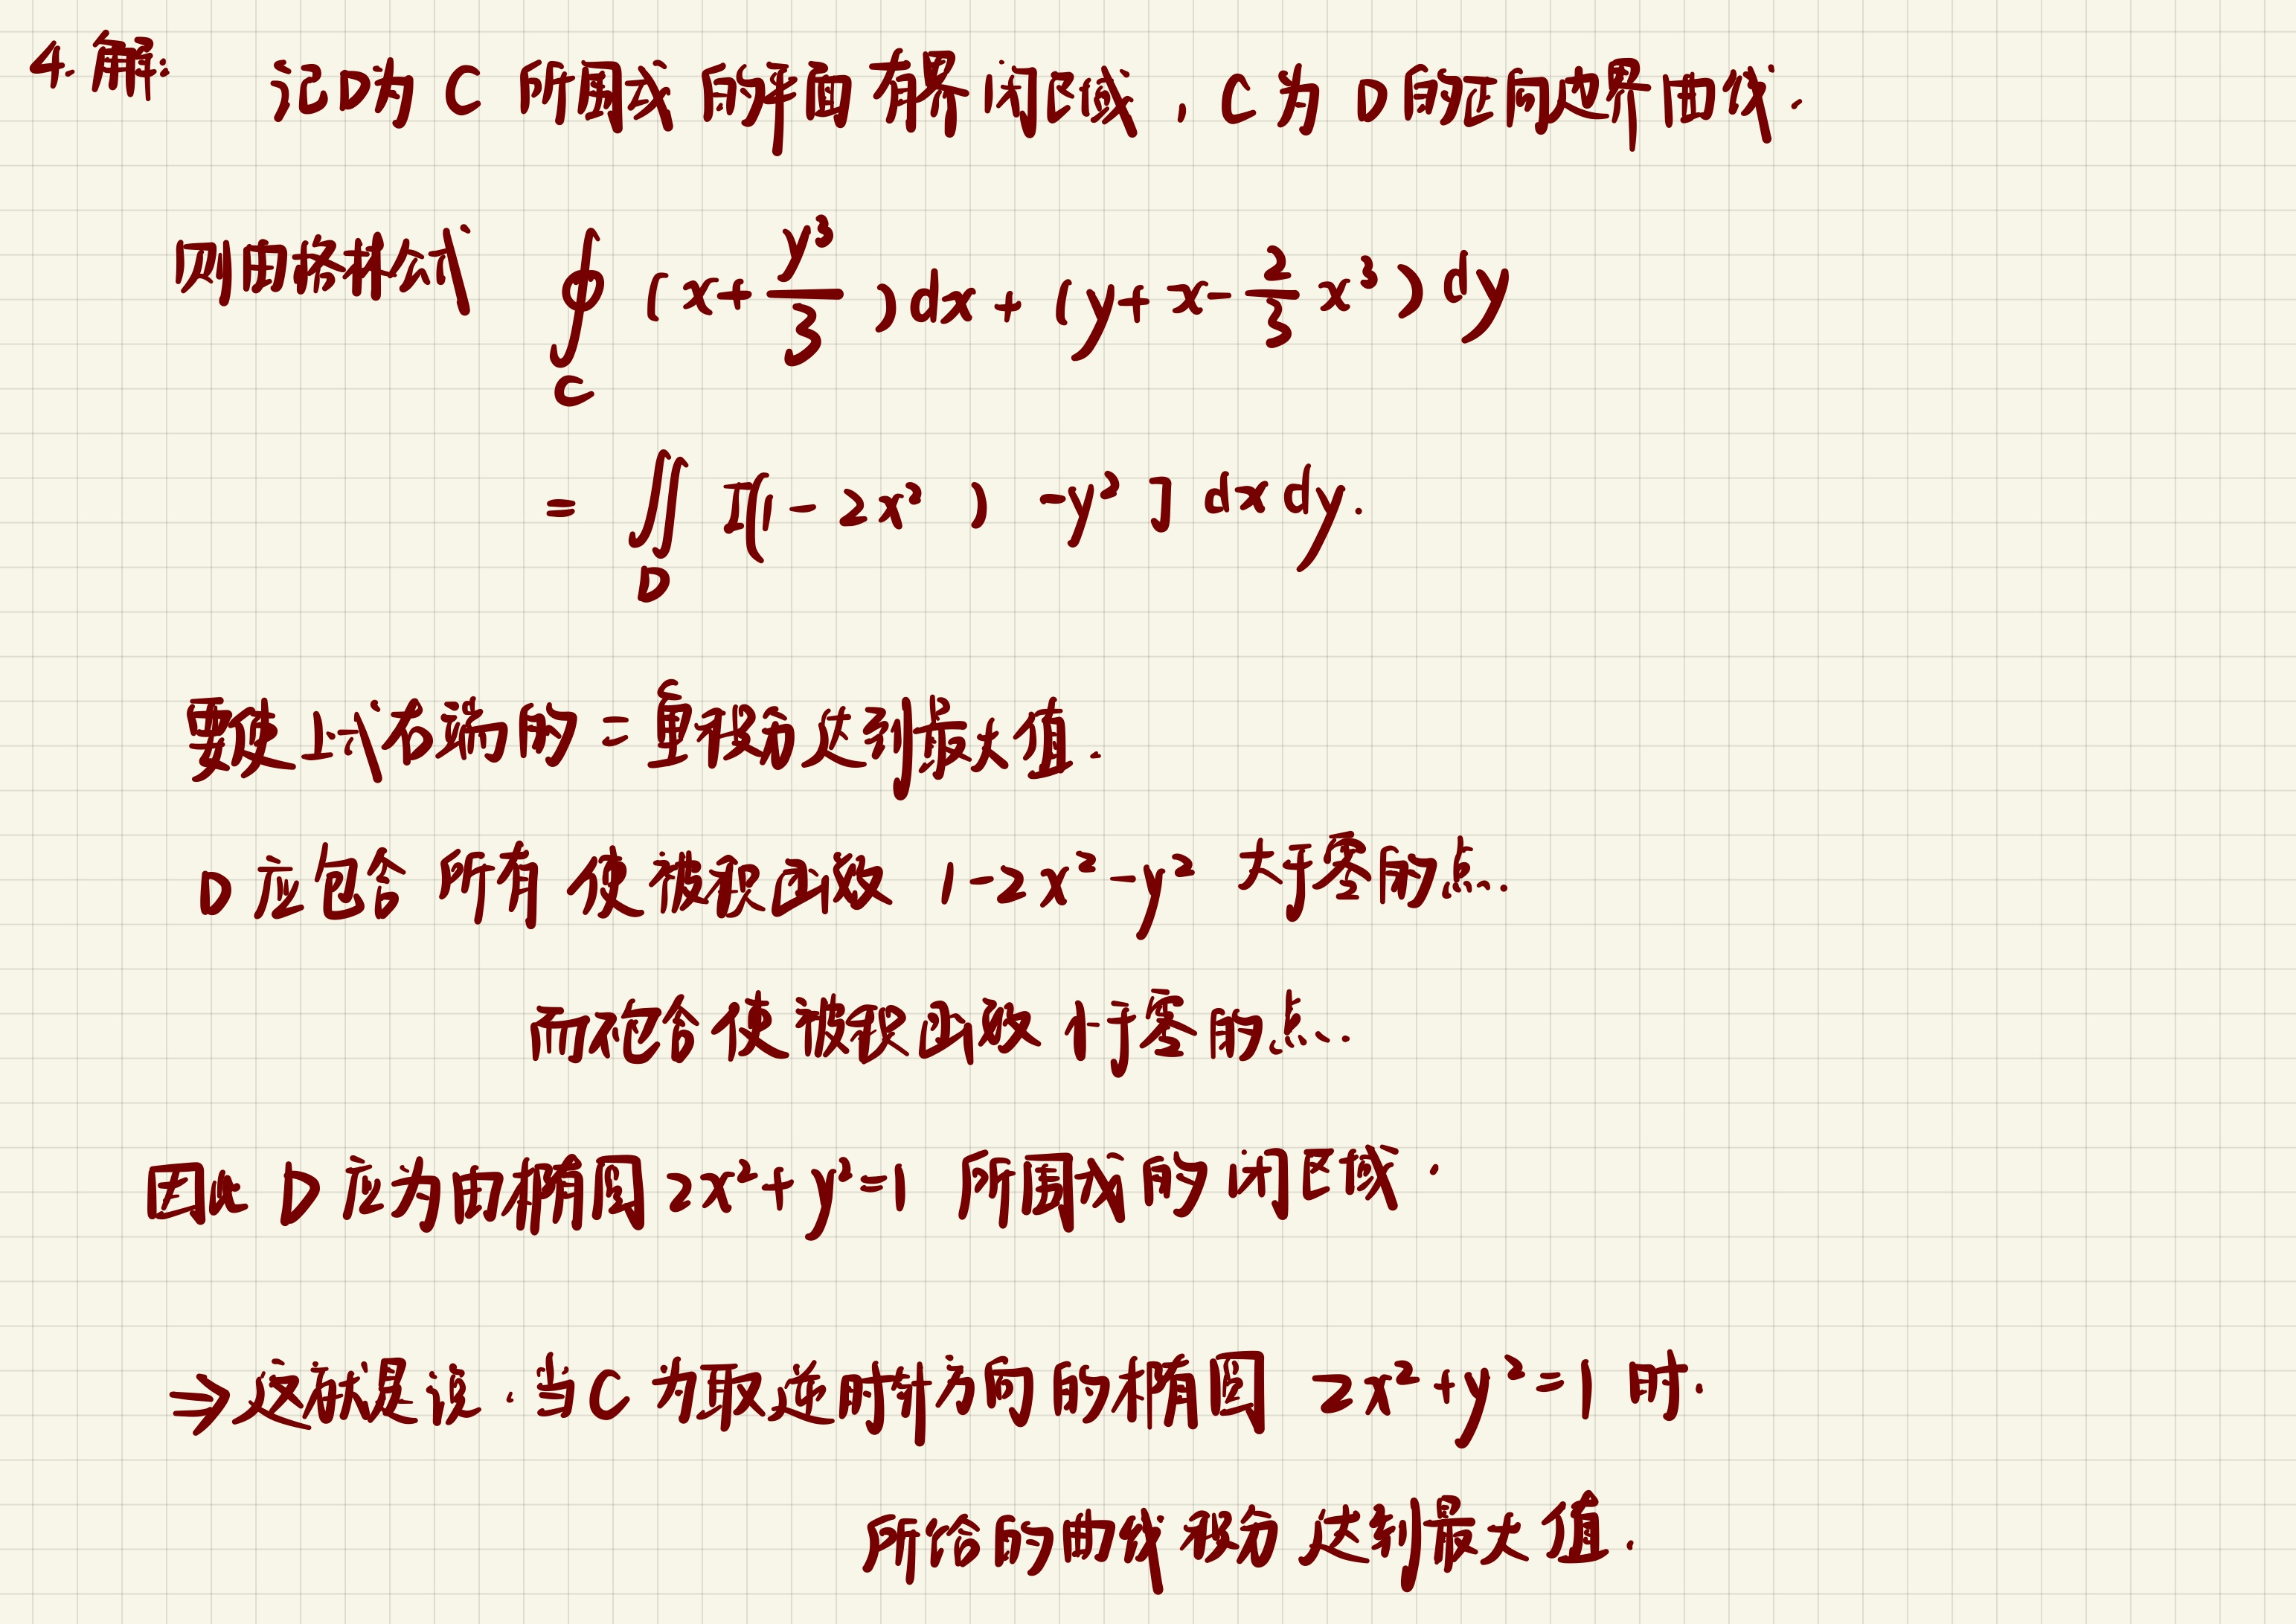 4.解: 记D为 C 所围成 的平面 有界 闭区域 , C 为 D 的正向边界曲线.
则由格林公式 ∮_C (x+y³/3)dx + (y+x-2/3 x³)dy
= ∬_D [(1-2x²) -y²] dxdy.
要使上式右端的二重积分达到最大值.
D 应包含 所有 使被积函数 1-2x²-y² 大于零的点.
而不包含使被积函数小于零的点.
因此 D 应为由椭圆 2x²+y²=1 所围成的闭区域.
⇒这就是说.当C为取逆时针方向的椭圆 2x²+y²=1 时.
所给的曲线积分 达到最大值.